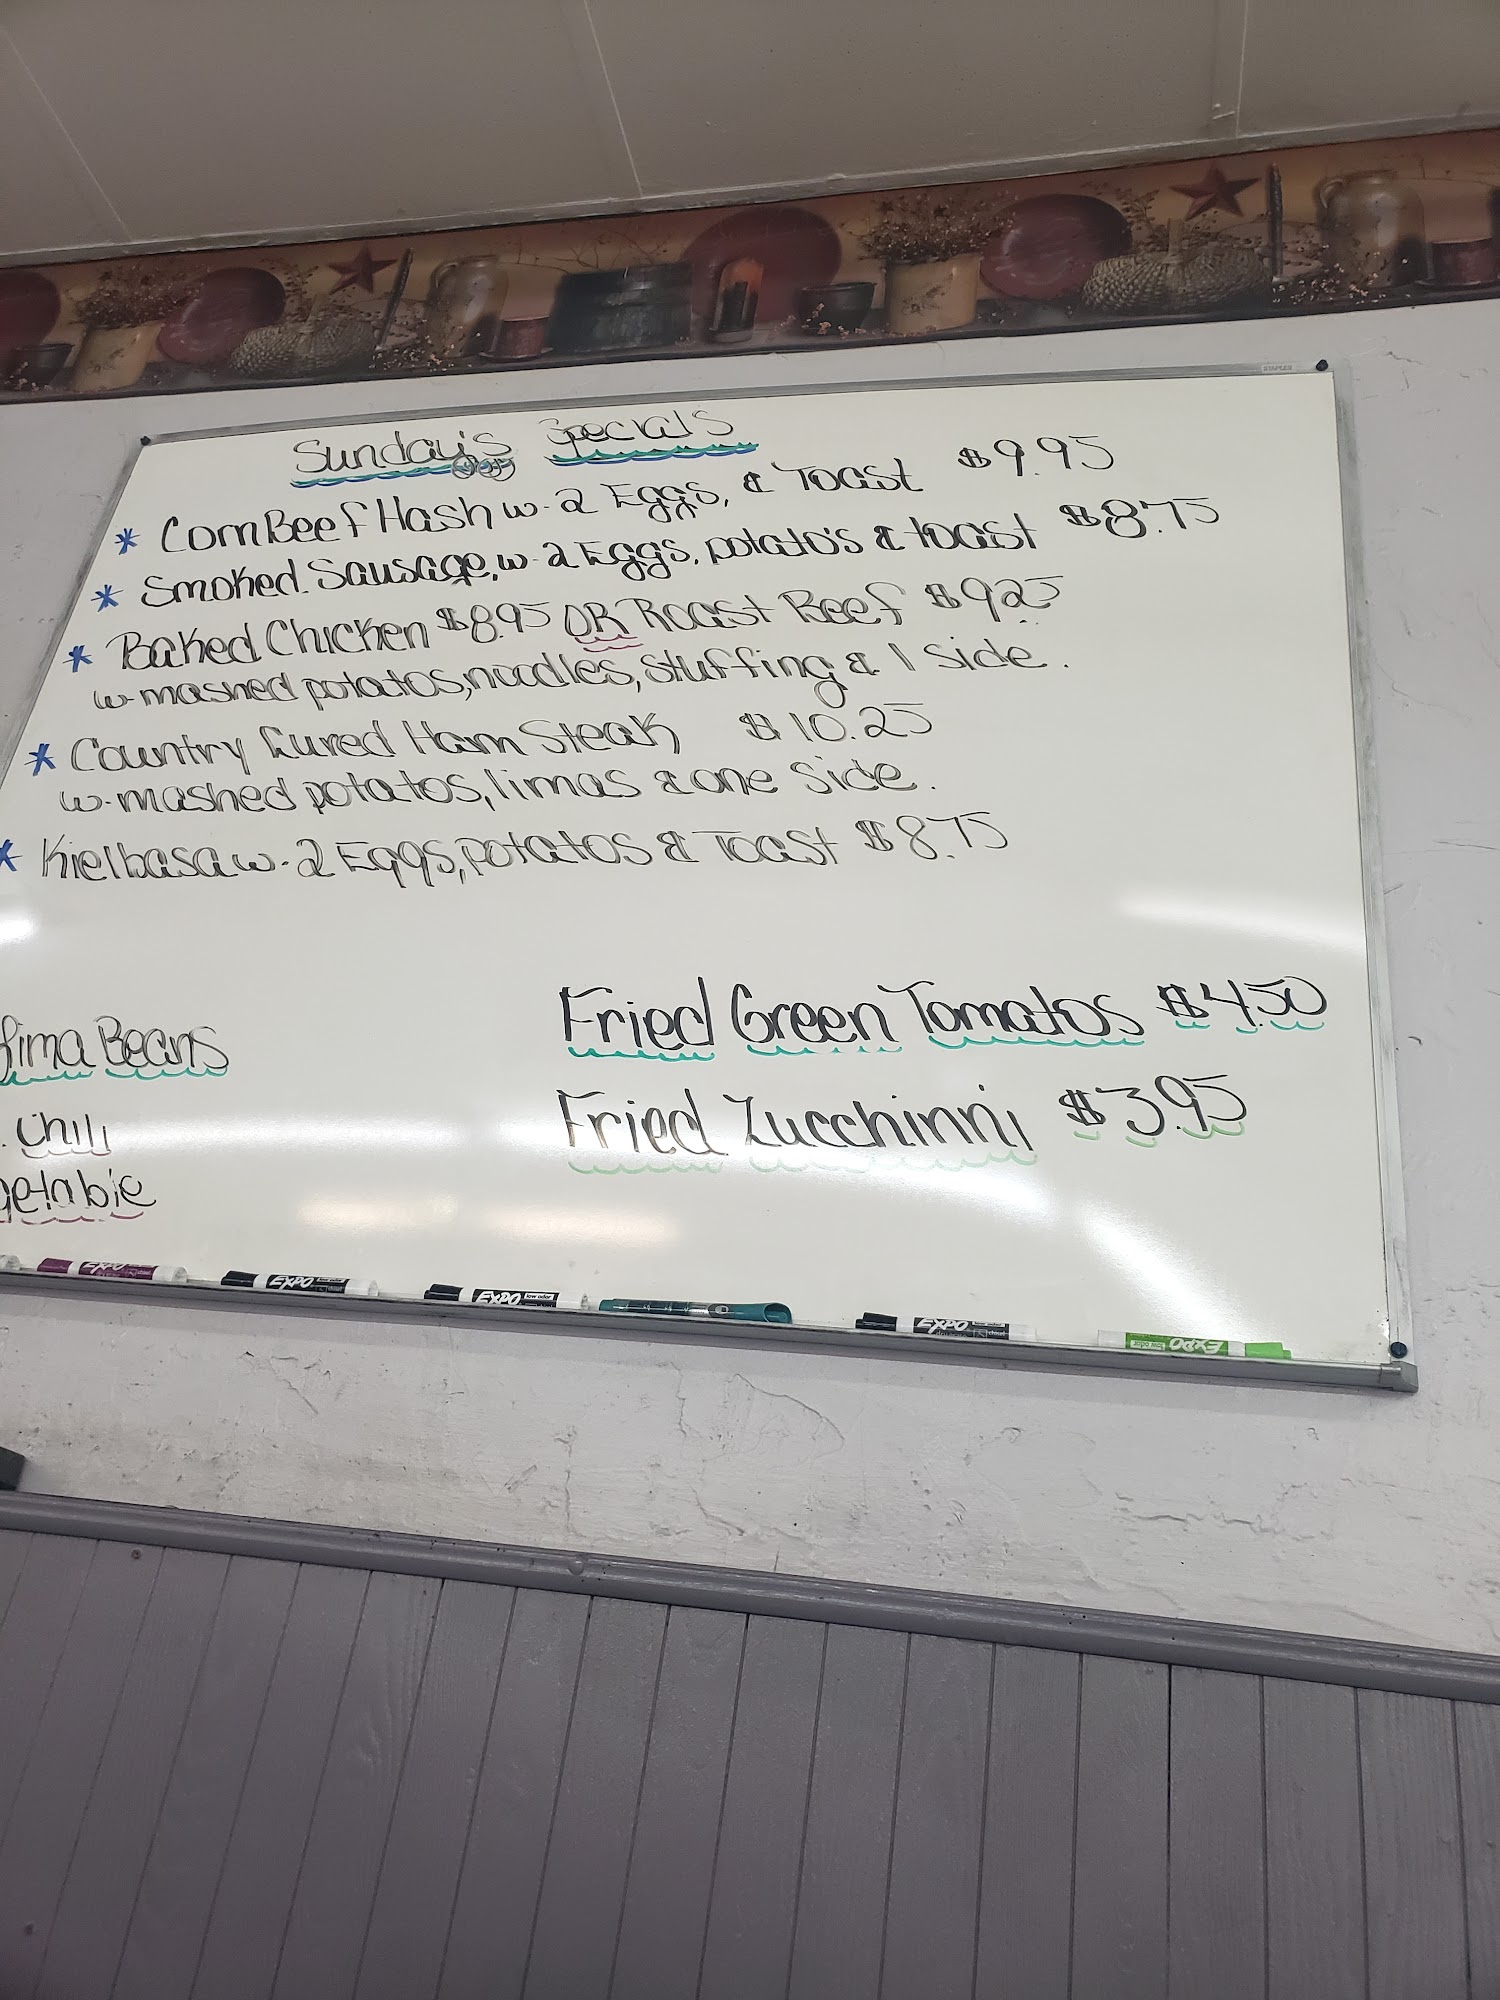 Sunday's Specials
* CornBeef Hash w. 2 Eggs, & Toast $9.95
* Smoked Sausage, w. 2 Eggs, potato's & toast $8.75
* Baked Chicken $8.95 OR Roast Beef $9.25
w. mashed potatos, noodles, stuffing & 1 side.
* Country Cured Ham Steak $10.25
w. mashed potatos, limas & one side.
* Kielbasa w. 2 Eggs, potatos & Toast $8.75
Fried Green Tomatos $4.50
Lima Beans
Fried Zucchinni $3.95
Chili
getable
EXPO
EXPO
EXPO low odor
EXPO
EXPO
STAPLES